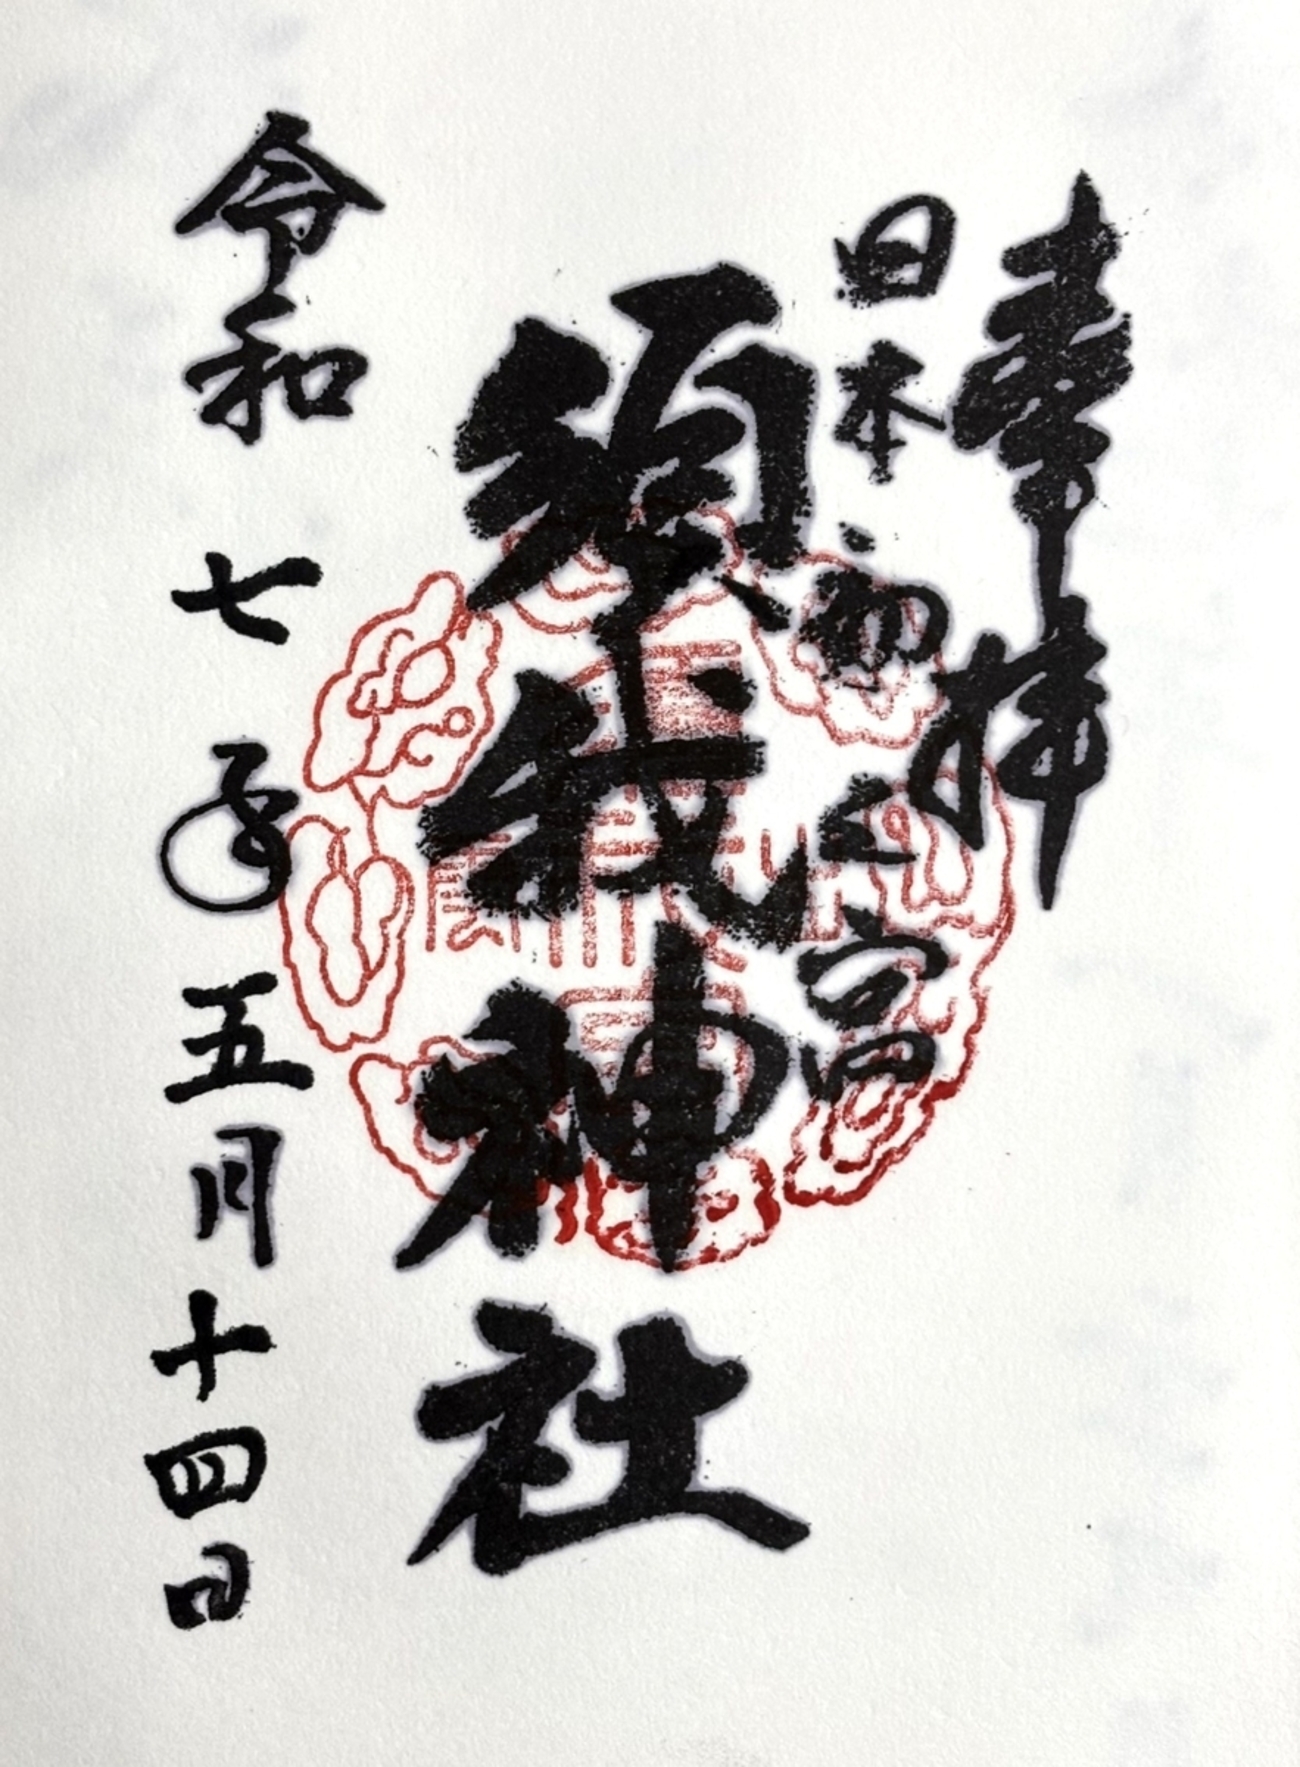 奉拝
日本初之宮
須我神社
令和七年五月十四日